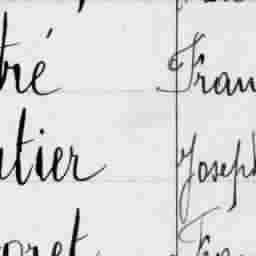 tré Fran
utier Joseph
oret